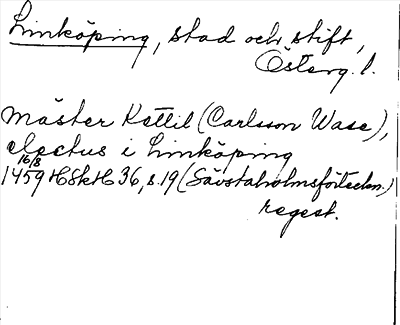 Linköping, stad och stift,
Österg. l.
Mäster Kettil (Carlsson Wase),
electus i Linköping
16/8
1459 HSkH 36, s. 19 (Sävstaholmsförteckn.)
regest.